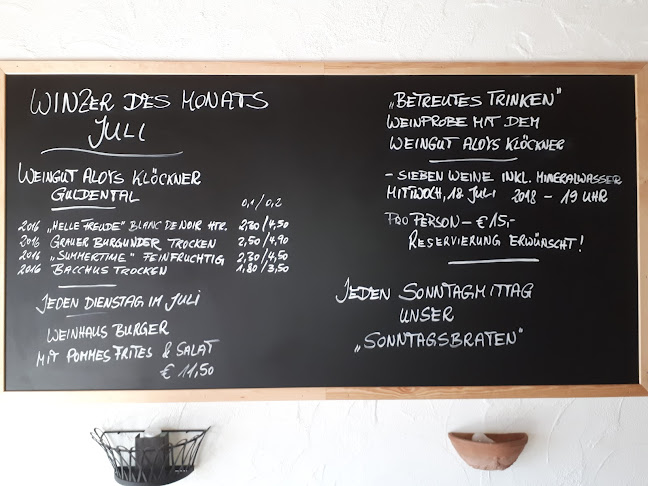 WINZER DES MONATS
JULI
WEINGUT ALOYS KLÖCKNER
GULDENTAL
0,1 / 0,2
2016 „HELLE FREUDE" BLANC DE NOIR HTR. 2,30/4,50
2016 GRAUER BURGUNDER TROCKEN 2,50/4,90
2016 „SUMMERTIME" FEINFRUCHTIG 2,30/4,50
2016 BACCHUS TROCKEN 1,80/3,50
JEDEN DIENSTAG IM JULI
WEINHAUS BURGER
MIT POMMES FRITES & SALAT
€ 11,50
„BETREUTES TRINKEN"
WEINPROBE MIT DEM
WEINGUT ALOYS KLÖCKNER
- SIEBEN WEINE INKL. MINERALWASSER
MITTWOCH, 18 JULI 2018 - 19 UHR
PRO PERSON - € 15,-
RESERVIERUNG ERWÜNSCHT!
JEDEN SONNTAGMITTAG
UNSER
„SONNTAGSBRATEN"